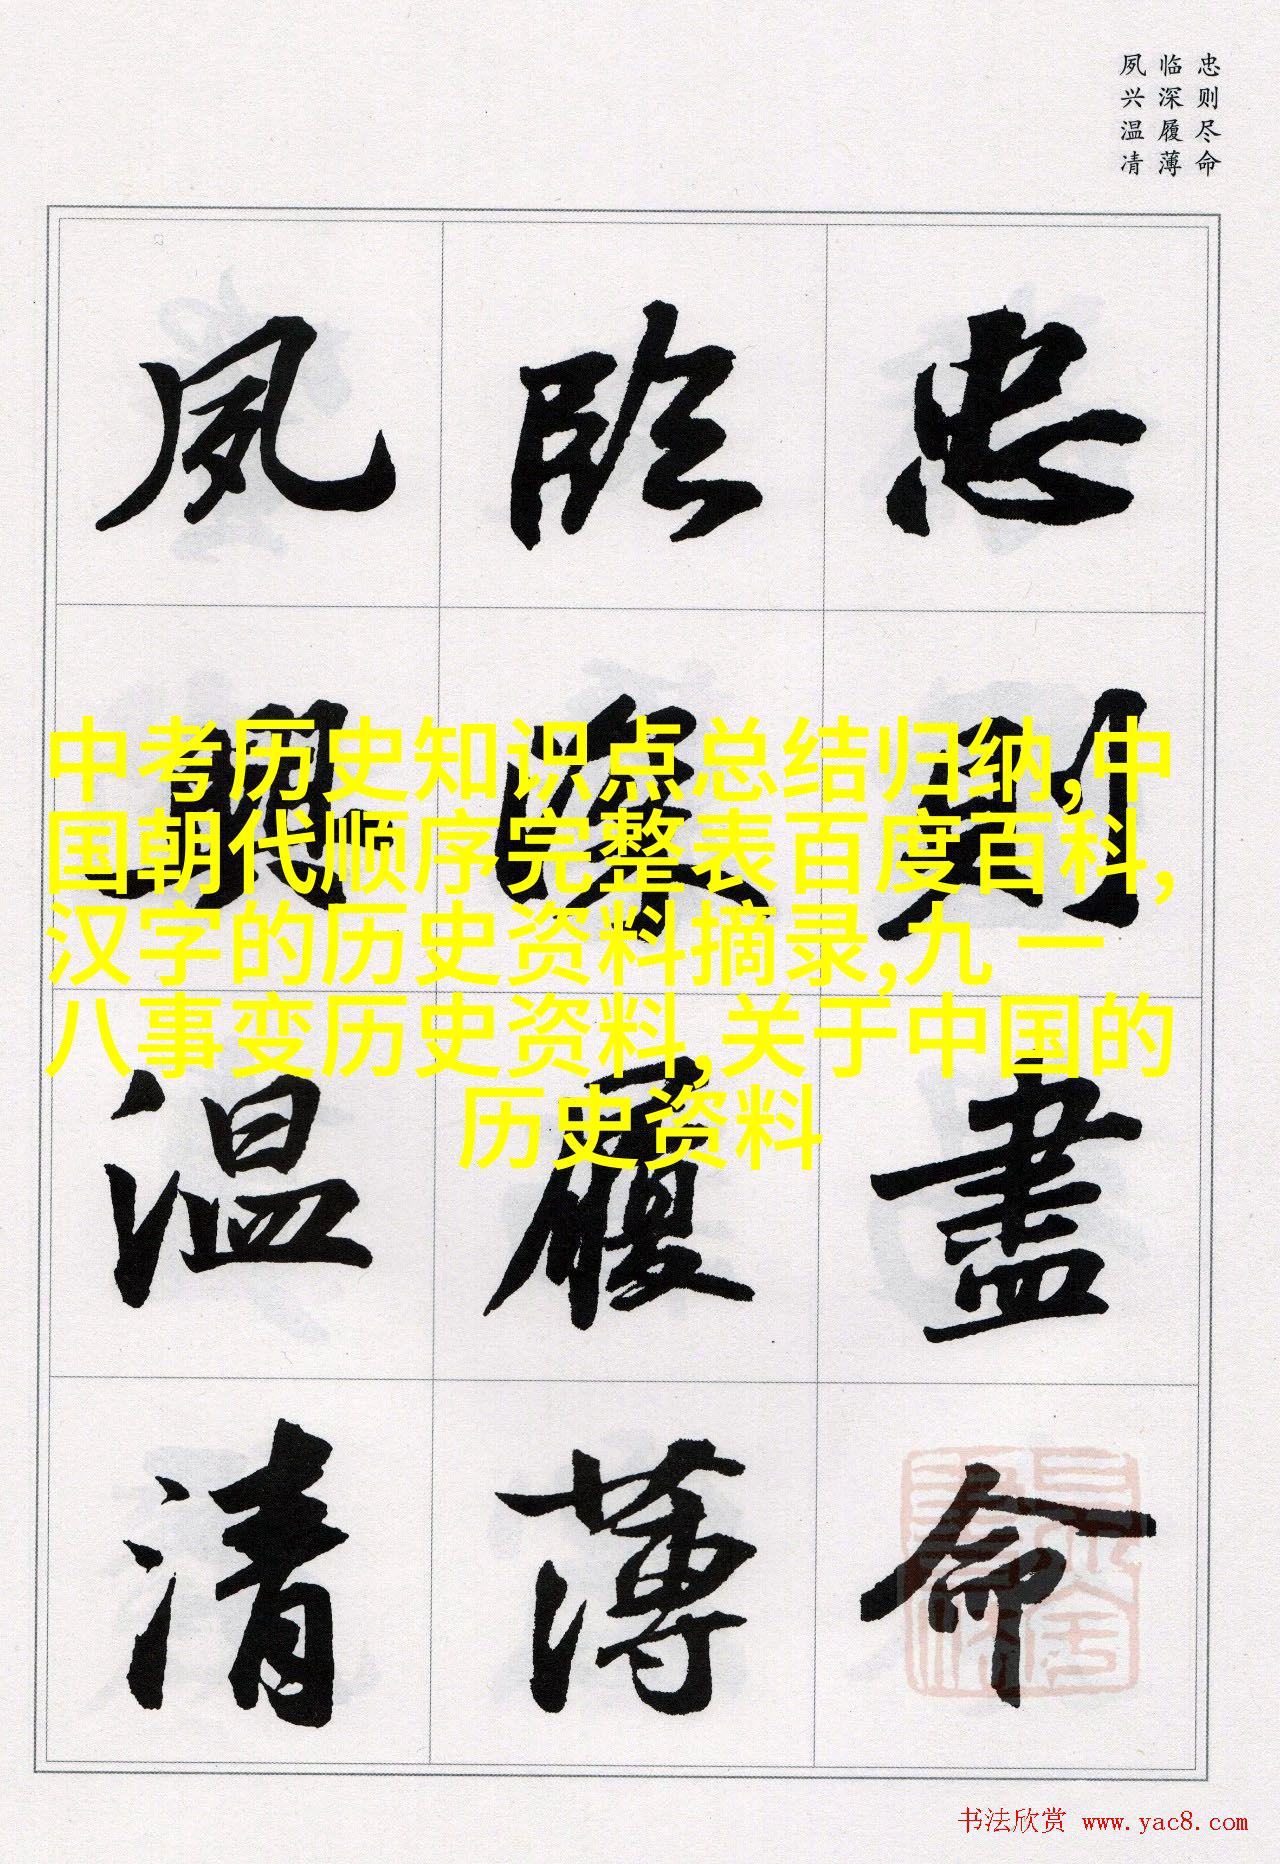 忠则尽命
临深履薄
夙兴温凊
忠則盡命
臨深履薄
夙興温清
中考历史知识点总结归纳,中
国朝代顺序完整表百度百科,
汉字的历史资料摘录,九一
八事变历史资料,关于中国的
历史资料
书法欣赏 www.yac8.com